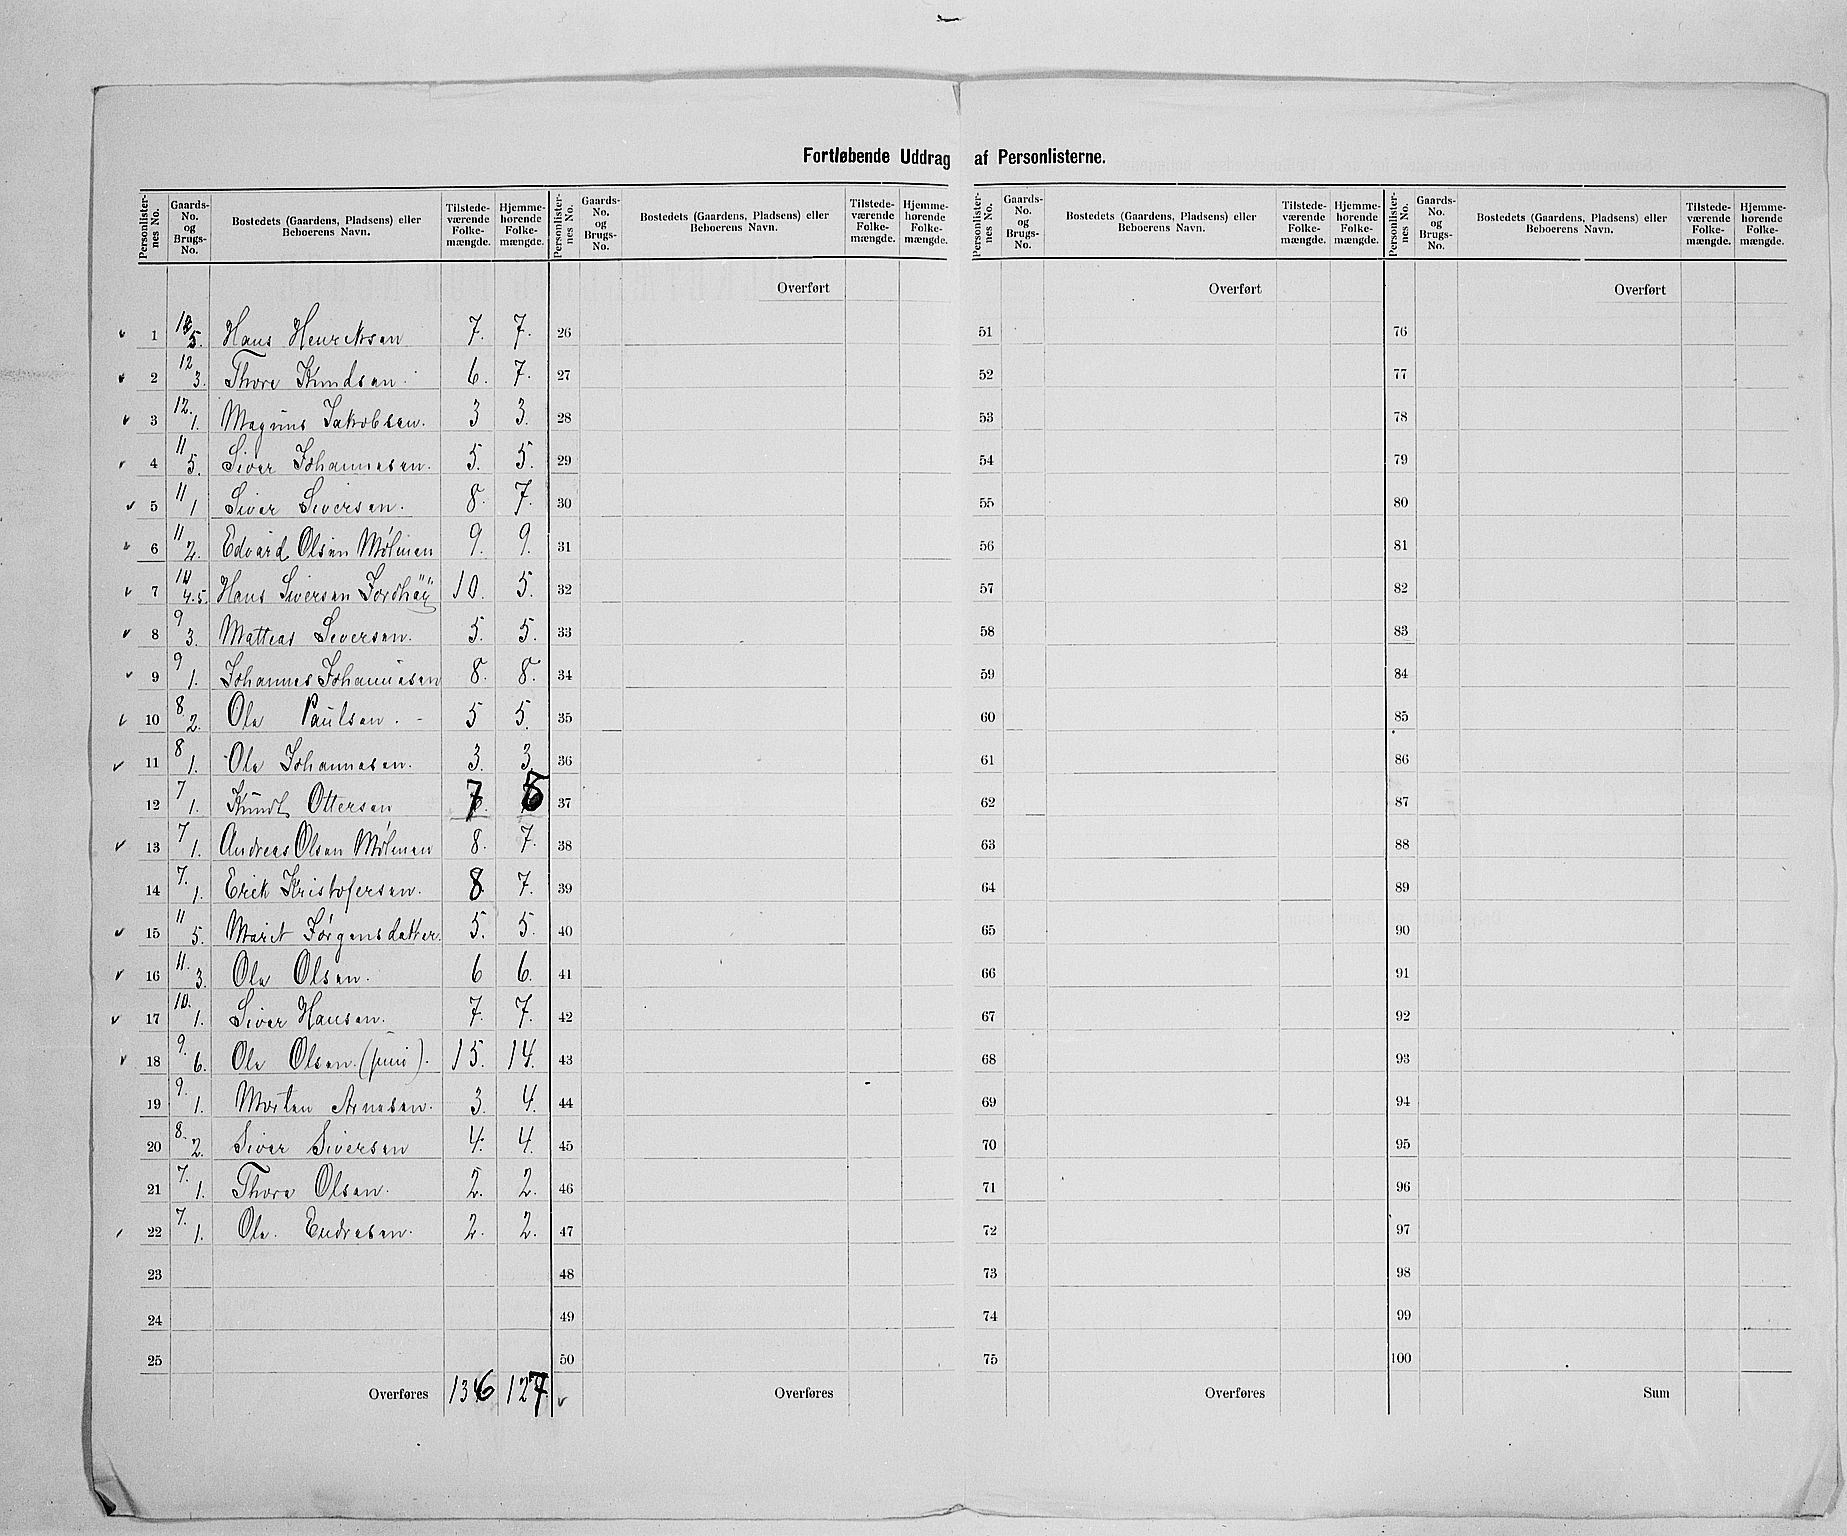 Fortløbende Uddrag af Personlisterne.
Personlisternes No. Gaards-No. og Brugs-No. Bostedets (Gaardens, Pladsens) eller Beboerens Navn. Tilstedeværende Folkemængde. Hjemmehørende Folkemængde.
Personlisternes No. Gaards-No. og Brugs-No. Bostedets (Gaardens, Pladsens) eller Beboerens Navn. Tilstedeværende Folkemængde. Hjemmehørende Folkemængde.
Personlisternes No. Gaards-No. og Brugs-No. Bostedets (Gaardens, Pladsens) eller Beboerens Navn. Tilstedeværende Folkemængde. Hjemmehørende Folkemængde.
Personlisternes No. Gaards-No. og Brugs-No. Bostedets (Gaardens, Pladsens) eller Beboerens Navn. Tilstedeværende Folkemængde. Hjemmehørende Folkemængde.
Overført Overført Overført
1 12 5. Hans Henriksen 7. 7. 26 51 76
2 12 3. Thore Knudsen. 6. 7. 27 52 77
3 12. 1. Magnus Jakobsen. 3 3. 28 53 78
4 11 5. Siver Johannesen. 5. 5. 29 54 79
5 11 1 Siver Siversen. 8. 7. 30 55 80
6 11 2. Edvard Olsen Mølmen 9. 9. 31 56 81
7 10 4.5. Hans Siversen Jordhøy 10. 5. 32 57 82
8 9 3. Mattias Siversen. 5. 5. 33 58 83
9 9 1. Johannes Johannesen 8. 8. 34 59 84
10 8. 2. Ole Paulsen. 5 5. 35 60 85
11 8 1. Ole Johannesen. 3. 3 36 61 86
12 7 1. Knudt Ottersen 7 5 37 62 87
13 7. 1. Andreas Olsen Mølmen 8. 7. 38 63 88
14 7. 1. Erik Kristofersen. 8. 7. 39 64 89
15 11 5. Marit Jørgensdatter. 5. 5. 40 65 90
16 11. 3. Ole Olsen. 6 6. 41 66 91
17 10. 1. Siver Hansen. 7. 7. 42 67 92
18 9. 6. Ole Olsen. 15. 14. 43 68 93
19 9. 1. Morten Arnesen. 3. 4. 44 69 94
20 8. 2. Siver Siversen 4. 4. 45 70 95
21 7. 1. Thore Olsen. 2. 2. 46 71 96
22 7. 1. Ole. Endresen. 2. 2. 47 72 97
23 48 73 98
24 49 74 99
25 50 75 100
Overføres 136 127 Overføres Overføres Sum